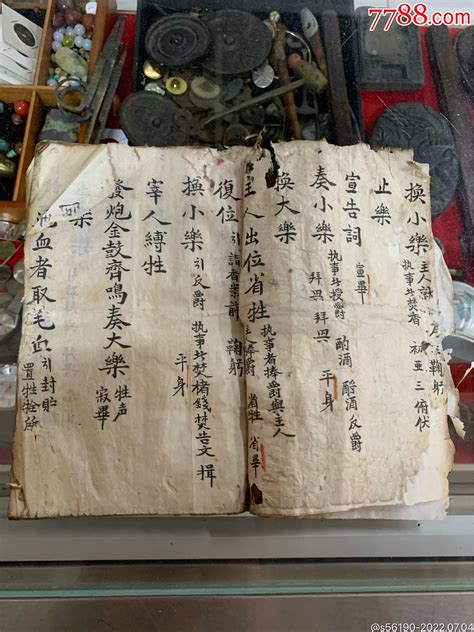 7788.com
換小樂 主人就 為 鞠躬 執事者焚香 祼亜三 俯伏
止樂
宣告詞 宣畢
奏小樂 執事者授爵 酌酒 酹酒 反爵 拜興 拜興 平身
換大樂
主人出位省牲 執事者捧爵與主人 主捧爵 省牲 省畢
復位 引詣香案前 鞠躬
換小樂 引反爵 執事者焚楮錢焚告文 揖 平身
宰人縛牲
發炮金鼓齊鳴奏大樂 牲声寂畢
血者取毛血 引封貯 置牲牷所
@s56190-2022.07.04